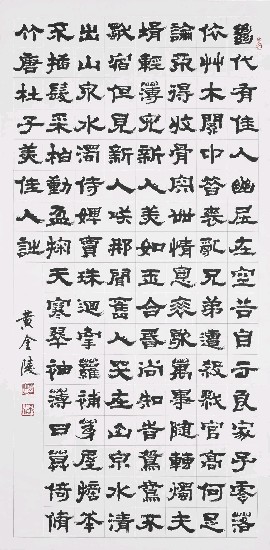 絕代有佳人幽居在空谷自云良家子零落
依艸木關中昔喪亂兄弟遭殺戮官高何足
論不得收骨肉世情惡衰歇萬事隨轉燭夫
婿輕薄兒新人美如玉合昏尚知時鴛鴦不
獨宿但見新人咲那聞舊人哭在山泉水清
出山泉水濁侍婢賣珠迴牽蘿補茅屋摘花
不插髮采柏動盈掬天寒翠袖薄日暮倚脩
竹唐杜子美佳人詩
黃金陵